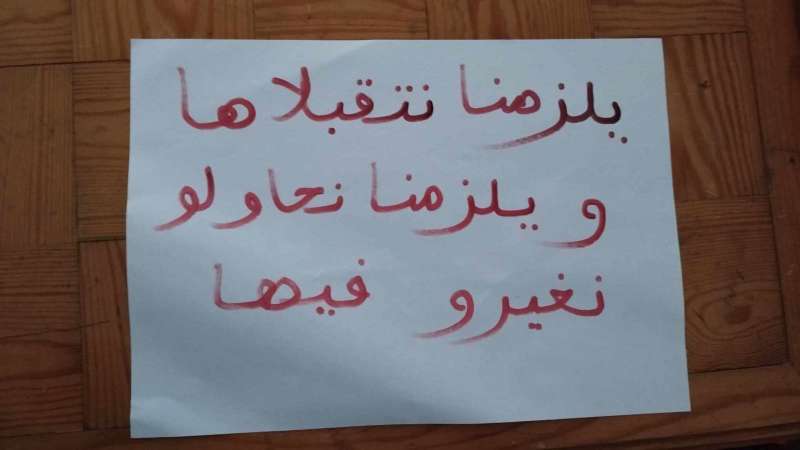 يلزمنا نتقبلاها
و يلزمنا نحاولو
نغيرو فيها